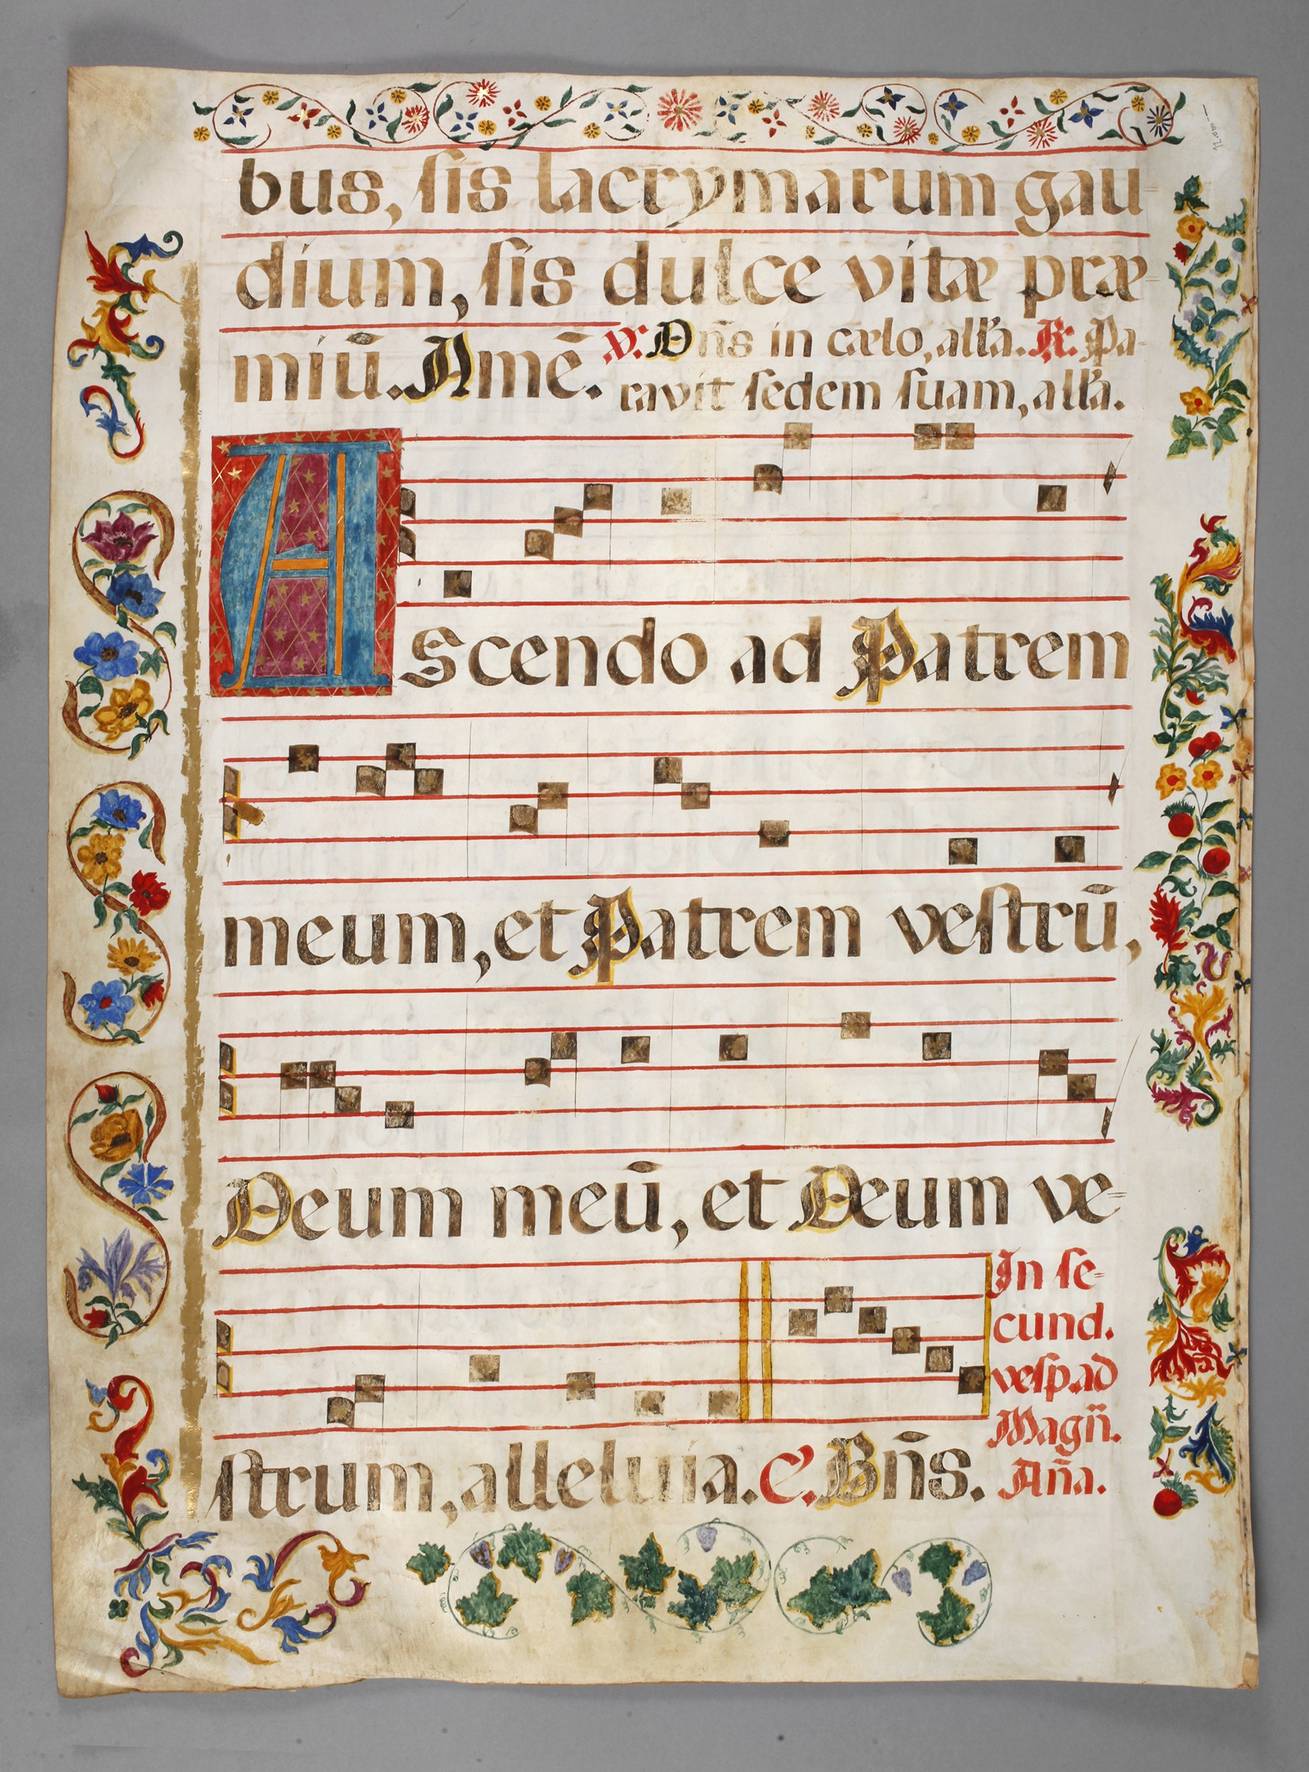 bus, sis lacrymarum gau
dium, sis dulce vitæ præ
miū. Amē. ℣. Dñs in cælo, alła. ℟. Pa-
ravit sedem suam, alła.
Ascendo ad Patrem
meum, et Patrem vestrū,
Deum meū, et Deum ve=
strum, alleluia. E. Bñs.
In se=
cund.
vesp. ad
Magñ.
Aña.